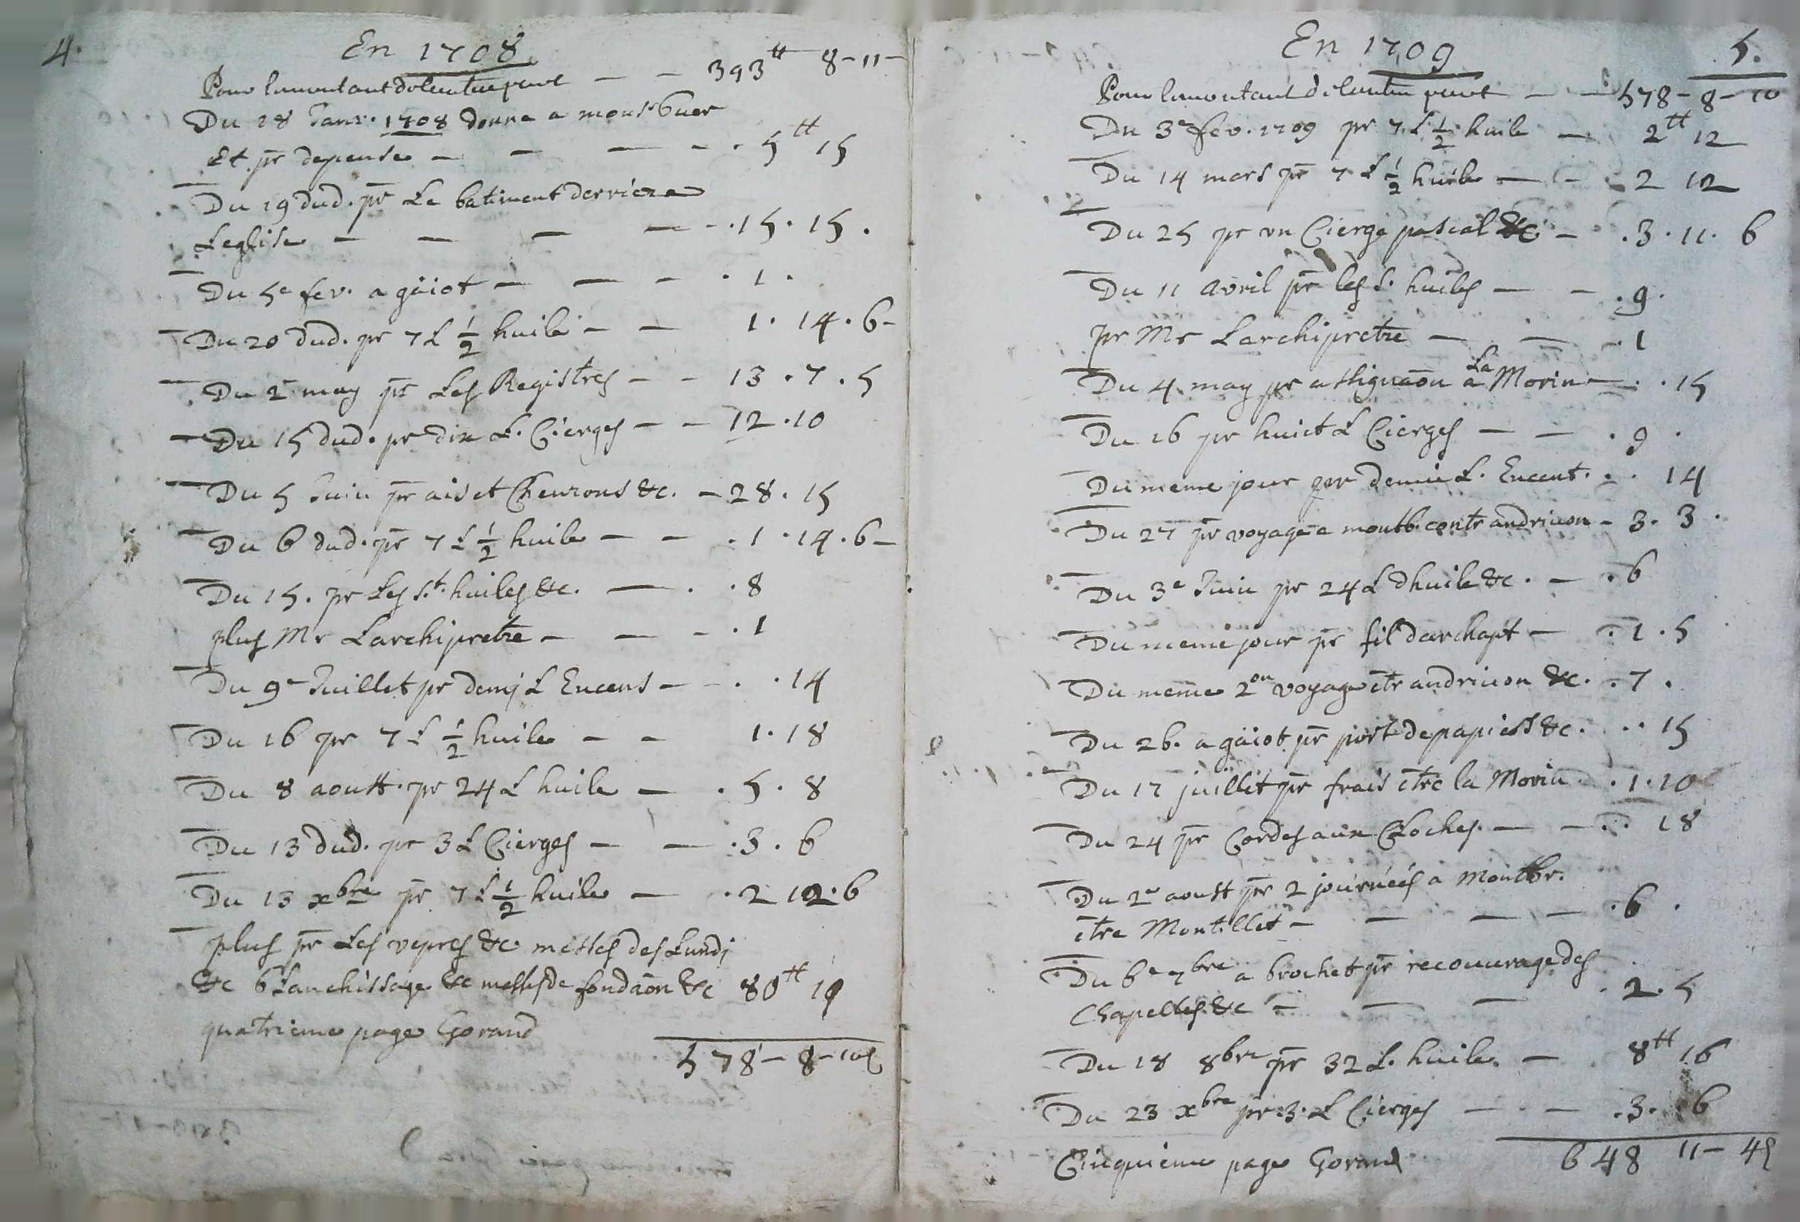 4.
En 1708.
Pour lemontant delautre part — — 393tt 8-11-
Du 28 Janv. 1708 donne a mons.r buer
Et pr depense — — — — . 5tt 15
Du 19 dud. pr Le batiment derriere
Leglise — — — — . 15 . 15 .
Du 5e fev. a gäiot — — — . 1 .
Du 20 dud. pr 7 L 1/2 huile — — 1 . 14 . 6 -
Du 2e may pr Les Registres — — 13 . 7 . 5
Du 15 dud. pr dix L. Cierges — — 12 . 10
Du 5 Juin pr ais et Chevrons &c. — 28 . 15
Du 6 dud. pr 7 L 1/2 huile — — . 1 . 14 . 6 -
Du 15. pr Les St. huiles &c. — . . 8
plus Mr Larchipretre — — — . 1
Du 9e Juillet pr demj L Encens — — . . 14
Du 16 pr 7 L 1/2 huile — — 1 . 18
Du 8 aoust . pr 24 L huile — . 5 . 8
Du 13 dud. pr 3 L Cierges — — . 3 . 6
Du 13 xbre pr 7 L 1/2 huile — . 2 12 . 6
plus pr Les vepres &c messes des Lundj
&c blanchissage &c messes de fondaõn &c 80tt 19
quatrieme page Gorand
578 - 8 - 10
5.
En 1709
Pour lemontant delautre part — — 578 - 8 - 10
Du 3e fev. 1709 pr 7. L. 1/2 huile — 2tt 12
Du 14 mars pr 7 L 1/2 huile — — . 2 12
Du 25 pr un Cierge pascal &c — . 3 . 11 . 6
Du 11 avril pr les S. huiles — — . 9 .
pr Mr Larchipretre — — . 1
Du 4 may pr assignaõn a La Morin — . . 15
Du 16 pr huict L Cierges — — . 9 .
Du meme jour pr demie L. Encent. . . 14
Du 27 pr voyage a montb. contr andrivon - 3 . 3 .
Du 3e Juin pr 24 L dhuile &c . — . 6
Du meme jour pr fil darchapt — . 1 . 5
Du meme 2on voyage ctr andrivon &c . . 7 .
Du 26. a gäiot pr port de papiers &c . . . 15
Du 17 juillet pr frais ctre la Morin . 1 . 10
Du 24 pr Cordes aux Cloches — — . . 18
Du 2e aoust pr 2 journées a Montbr.
ctre Montillet — — — — . 6 .
Du 6e 7bre a brochet pr recouvrage des
Chapelles &c — — — . 2 . 5
Du 18 8bre pr 32 L. huile — 8tt 16
Du 23 xbre pr 3. L Cierges — — . 3 . 6
Cinquieme page Gorand 648 11 - 4